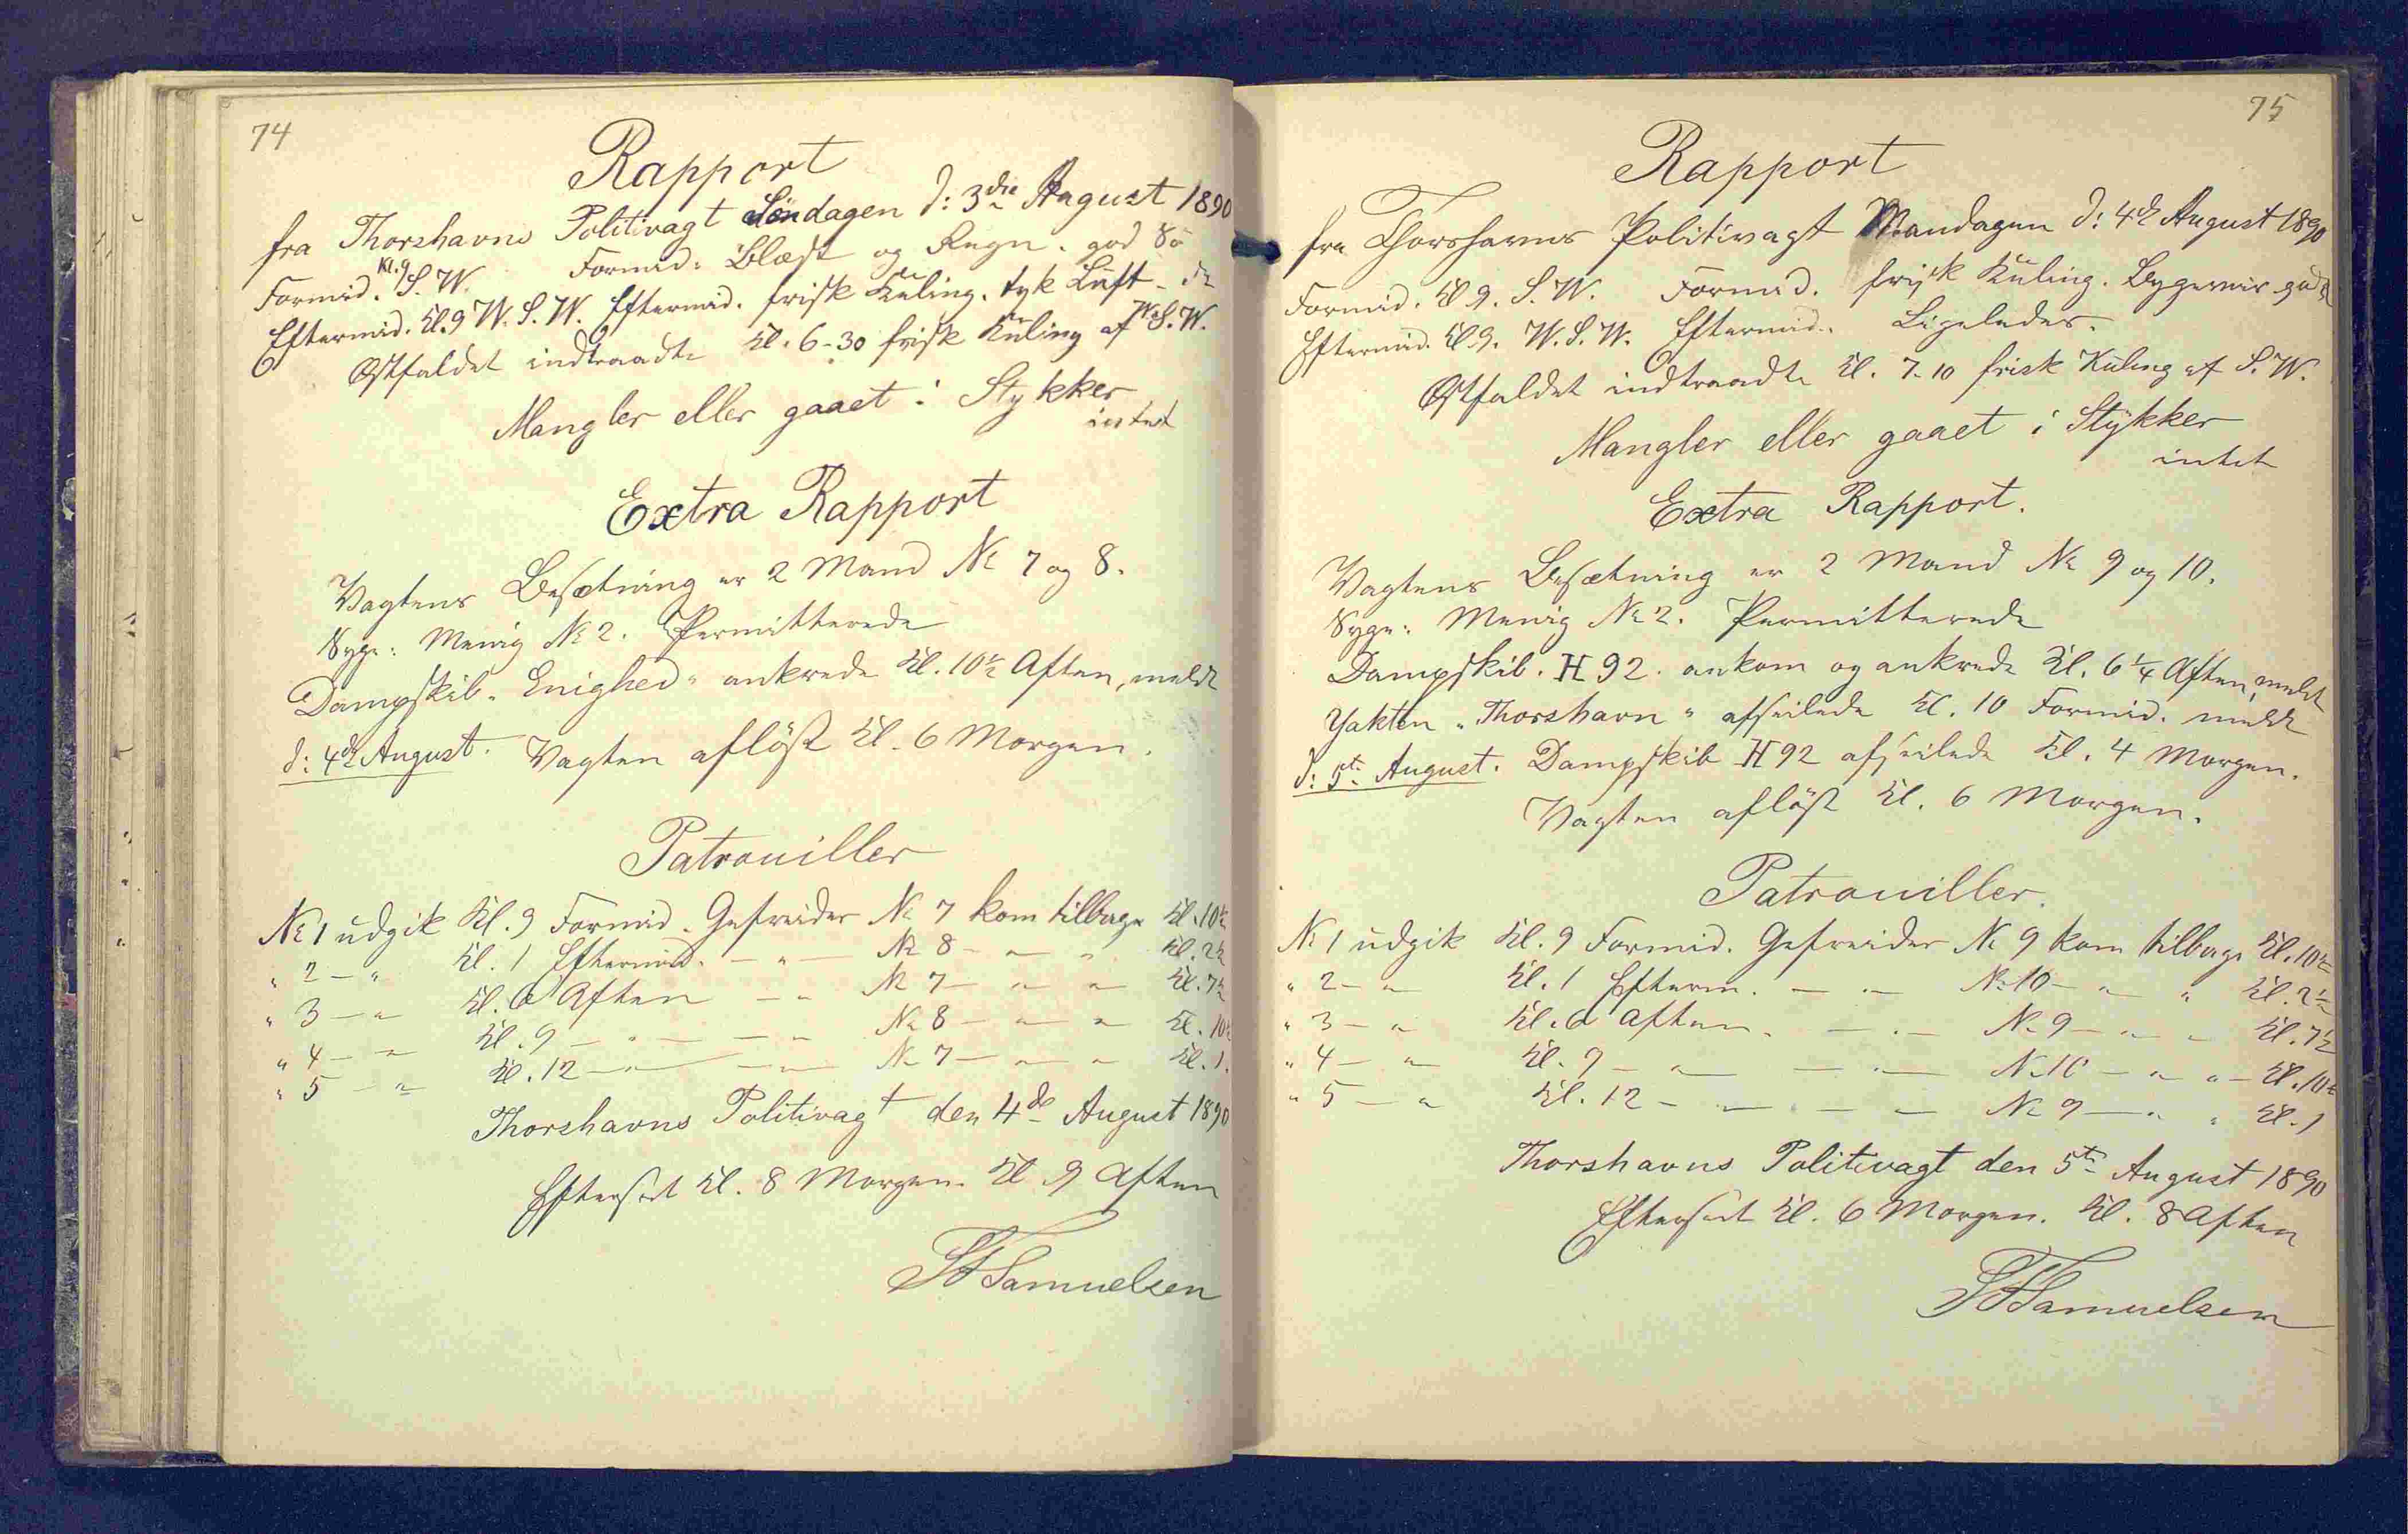 74
Rapport
fra Thorshavns Politivagt Søndagen d: 3die August 1890
Formid. Kl. 9 S. W. Formid: Blæst og Regn. god Sö
Eftermid. Kl. 9 W. S. W. Eftermid. frisk Kuling. tyk Luft - do
Østfaldet indtraadte Kl. 6-30 frisk Kuling af W. S. W.
Mangler eller gaaet i Stykker
intet
Extra Rapport
Vagtens Besætning er 2 Mand No 7 og 8.
Syge: Menig No 2. Permitterede
Dampskib „Enighed" ankrede Kl. 10½ Aften, meldt
d: 4de August. Vagten aflöst Kl. 6 Morgen.
Patrouiller
No 1 udgik Kl. 9 Formid. Gefreider No 7 kom tilbage Kl. 10½
" 2 — " Kl. 1 Eftermid. — " — No 8 — " " Kl. 2½
" 3 — " Kl. 6 Aften — " No 7 — " " Kl. 7½
" 4 — " Kl. 9 — " — — " No 8 — " " Kl. 10½
" 5 — " Kl. 12 — " — — " No 7 — " " Kl. 1.
Thorshavns Politivagt den 4de August 1890
Efterseet Kl. 8 Morgen. Kl 9 Aften
Samuelsen
75
Rapport
fra Thorshavns Politivagt Mandagen d: 4de August 1890
Formid. Kl 9. S. W. Formid. frisk Kuling. Bygeveir god
Eftermid. Kl 9. W. S. W. Eftermid. Ligeledes.
Østfaldet indtraadte Kl. 7-10 frisk Kuling af S. W.
Mangler eller gaaet i Stykker
intet
Extra Rapport.
Vagtens Besætning er 2 Mand No 9 og 10.
Syge: Menig No 2. Permitterede
Dampskib. H 92. ankom og ankrede Kl. 6¼ Aften, meldt
Yakten „Thorshavn" afseilede Kl. 10 Formid. meldt
d: 5te August. Dampskib H 92 afseilede Kl. 4 Morgen.
Vagten aflöst Kl. 6 Morgen.
Patrouiller.
No 1 udgik Kl. 9 Formid. Gefreider No 9 kom tilbage Kl. 10½
" 2 — " Kl. 1 Efterm. — " — No 10 — " " Kl. 2½
" 3 — " Kl. 6 Aften. — " — No 9 — " " Kl. 7½
" 4 — " Kl. 9 — " — — " — No 10 — " " — Kl. 10½
" 5 — " Kl. 12 — " — " — " No 9 — " " Kl. 1
Thorshavns Politivagt den 5te August 1890
Efterseet Kl. 6 Morgen. Kl. 8 Aften
Samuelsen